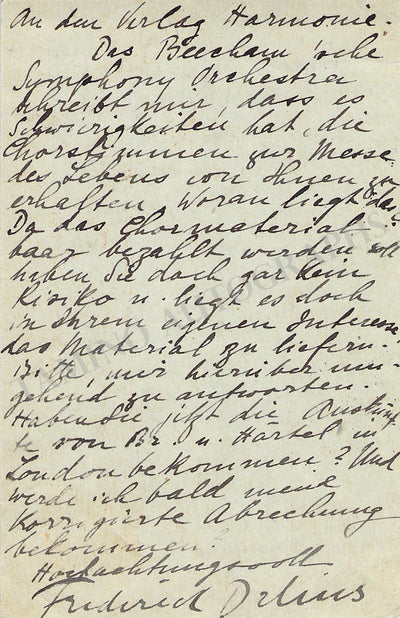 An den Verlag Harmonie.
Das Beecham'sche
Symphony Orchestra
schreibt mir, dass es
Schwierigkeiten hat, die
Chorstimmen zur Messe
des Lebens von Ihnen zu
erhalten. Woran liegt das?
Da das Chormaterial
baar bezahlt werden soll
haben Sie doch gar kein
Risiko u. liegt es doch
in Ihrem eigenen Interesse
das Material zu liefern.
Bitte, mir hierüber um-
gehend zu antworten.
Haben Sie jetzt die Auskünf-
te von Br. u. Härtel in
London bekommen? Und
werde ich bald meine
korrigierte Abrechnung
bekommen?
Hochachtungsvoll
Frederick Delius
TAMINO AUTOGRAPHS